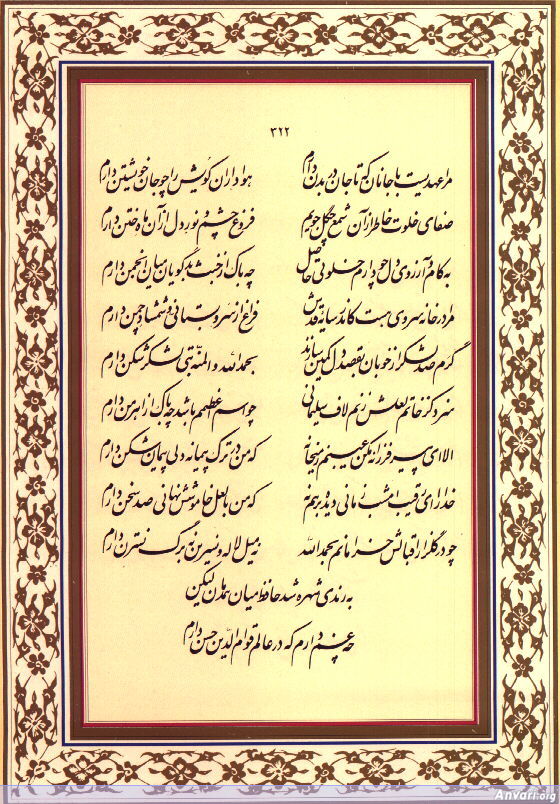 ۳۲۲
مرا عهدیست با جانان که تا جان در بدن دارم هواداران کویش را چو جان خویشتن دارم
صفای خلوت خاطر از آن شمع چگل جویم فروغ چشم و نور دل از آن ماه ختن دارم
به کام و آرزوی دل چو دارم خلوتی حاصل چه باک از خبث بدگویان میان انجمن دارم
مرا در خانه سروی هست کاندر سایه قدش فراغ از سرو بستانی و شمشاد چمن دارم
گرم صد لشکر از خوبان به قصد دل کمین سازند بحمدالله و المنه بتی لشکرشکن دارم
سزد کز خاتم لعلش زنم لاف سلیمانی چو اسم اعظمم باشد چه باک از اهرمن دارم
الا ای پیر فرزانه مکن عیبم ز میخانه که من در ترک پیمانه دلی پیمان شکن دارم
خدا را ای رقیب امشب زمانی دیده بر هم نه که من با لعل خاموشش نهانی صد سخن دارم
چو در گلزار اقبالش خرامانم بحمدالله نه میل لاله و نسرین نه برگ نسترن دارم
به رندی شهره شد حافظ میان همدمان لیکن
چه غم دارم که در عالم قوام الدین حسن دارم
Anvari.org